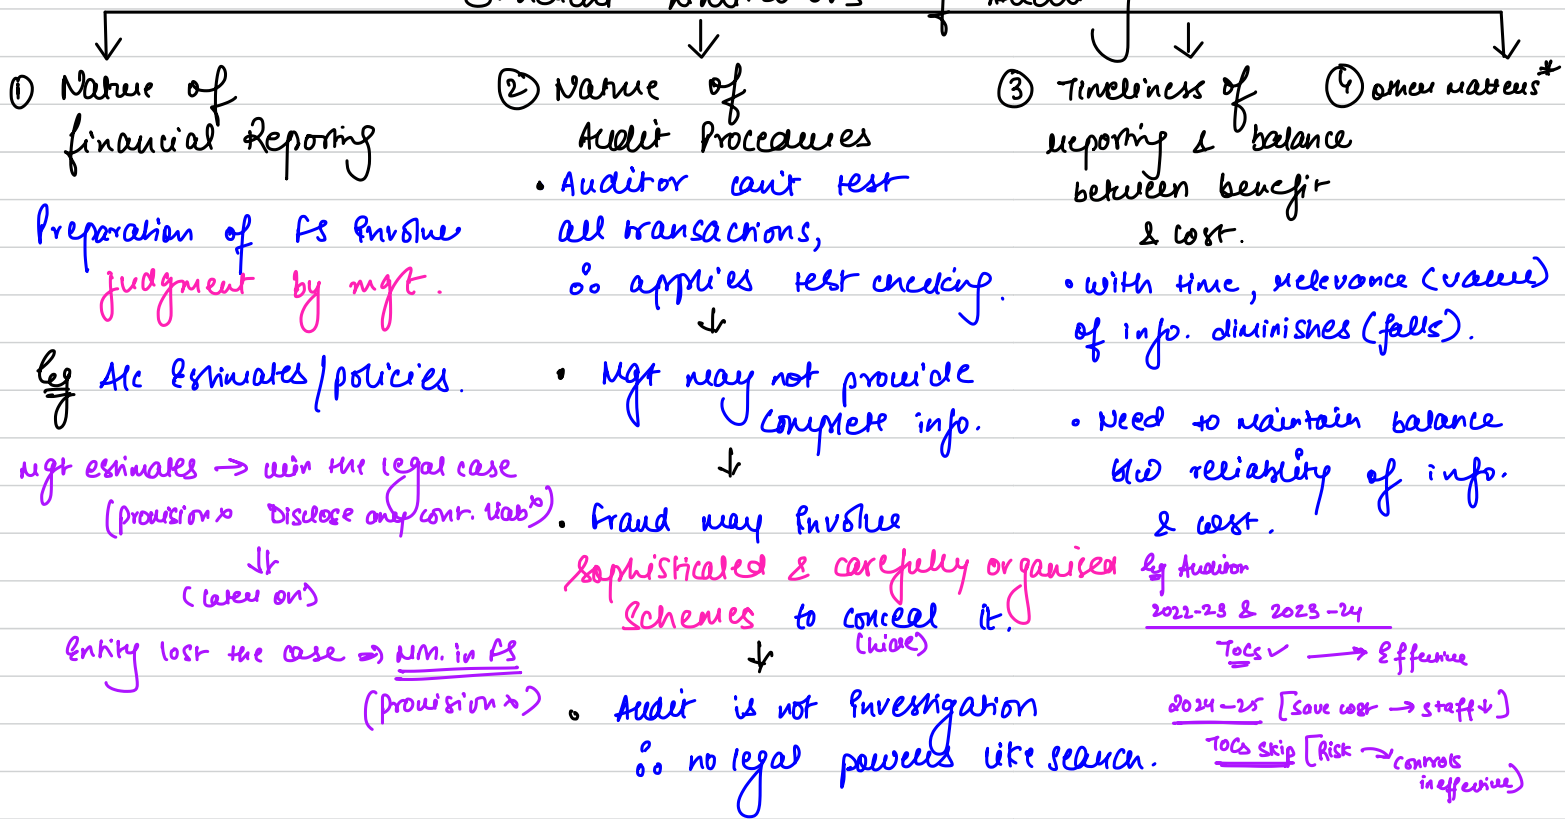 ① Nature of
financial Reporting
Preparation of FS involve
judgment by mgt.
eg A/c Estimates/policies.
Mgt estimates → win the legal case
(Provision × Disclose only cont. liab×)
⇓
(later on)
Entity lost the case ⇒ MM. in FS
(Provision ×)
② Nature of
Audit Procedures
• Auditor can't test
all transactions,
∴ applies test checking.
↓
• Mgt may not provide
complete info.
↓
• Fraud may involve
sophisticated & carefully organised
schemes to conceal it.
(hide)
↓
• Audit is not investigation
∴ no legal powers like search.
③ Timeliness of
reporting & balance
between benefit
& cost.
• with time, relevance (value)
of info. diminishes (falls).
• Need to maintain balance
b/w reliability of info.
& cost.
eg Auditor
2022-23 & 2023-24
TOCs ✓ → Effective
2024-25 [Save cost → staff↓]
TOCs skip [Risk → controls
ineffective)
④ other matters*